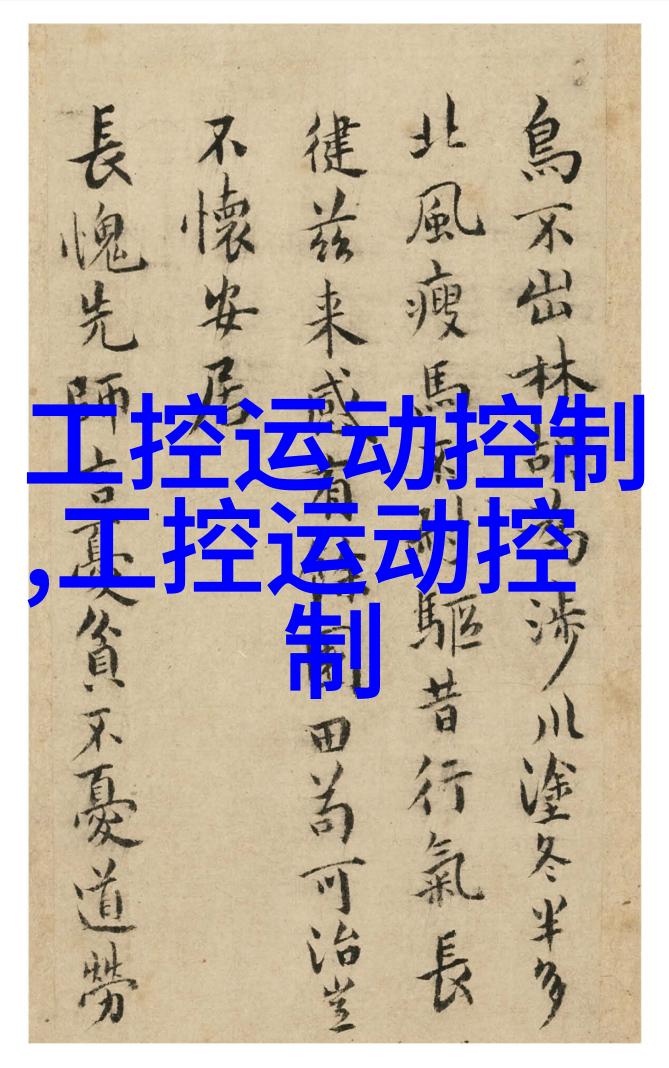 鳥不出林胡為涉川塗冬半多
北風瘦馬不耐驅昔行氣長
健茲来感有田苟可治豈
不懷安居
長愧先師言憂貧不憂道勞
工控运动控制
,工控运动控
制